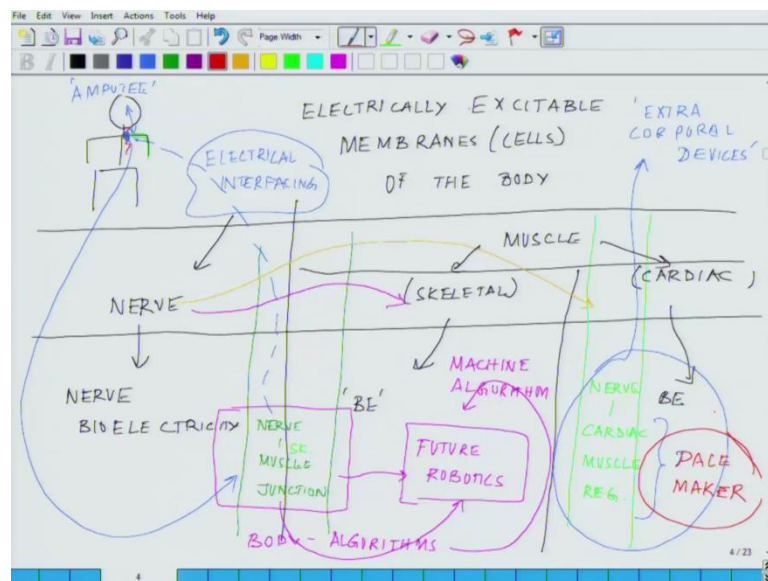 File Edit View Insert Actions Tools Help
Page Width
'AMPUTEE'
ELECTRICALLY EXCITABLE
MEMBRANES (CELLS)
OF THE BODY
'EXTRA
CORPORAL
DEVICES'
ELECTRICAL
INTERFACING
MUSCLE
NERVE
(SKELETAL)
(CARDIAC)
NERVE
BIOELECTRICITY
'BE'
MACHINE
ALGORITHM
BE
NERVE
SK.
MUSCLE
JUNCTION
FUTURE
ROBOTICS
NERVE
CARDIAC
MUSCLE
REG.
PACE
MAKER
BODY - ALGORITHMS
4/23
4